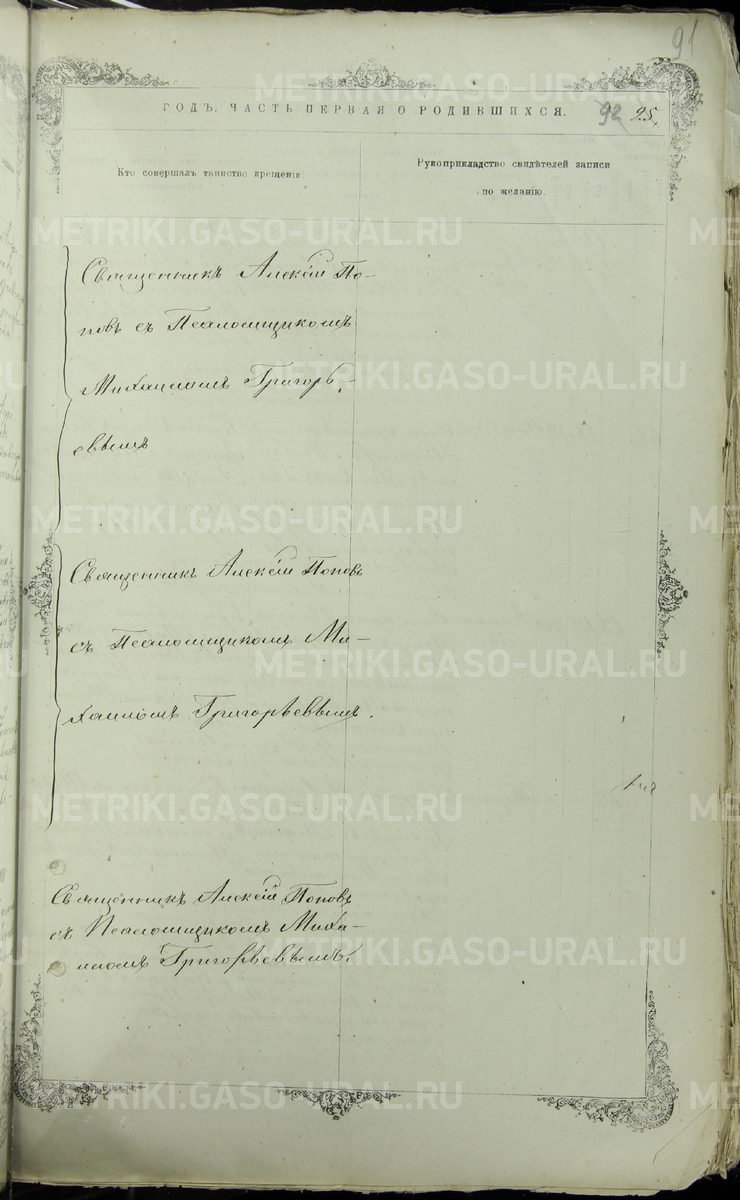 91
ГОДЪ, ЧАСТЬ ПЕРВАЯ О РОДИВШИХСЯ. 92 25.
Кто совершалъ таинство крещенія
Рукоприкладство свидѣтелей записи
по желанію.
Священникъ Алексій По-
повъ съ Псаломщикомъ
Михаиломъ Григорь-
евымъ
Священникъ Алексій Поповъ
съ Псаломщикомъ Ми-
хаиломъ Григорьевымъ.
Священникъ Алексій Поповъ
съ Псаломщикомъ Миха-
иломъ Григорьевымъ.
METRIKI.GASO-URAL.RU